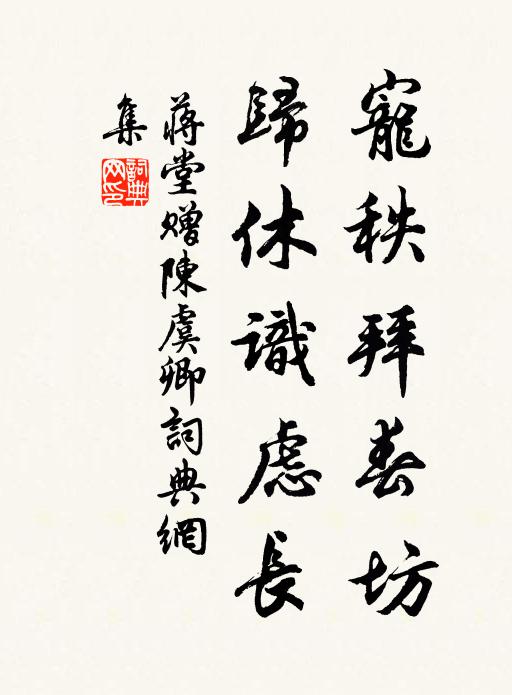 寵秩拜春坊
歸休識慮長
蔣堂贈陳虞卿詞典網
集
詞典
网印